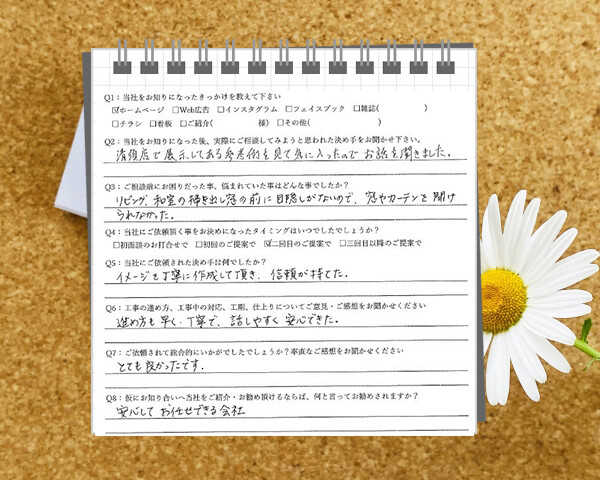 Q1：当社をお知りになったきっかけを教えて下さい
☑ホームページ □Web広告 □インスタグラム □フェイスブック □雑誌( )
□チラシ □看板 □ご紹介( 様) □その他( )
Q2：当社をお知りになった後、実際にご相談してみようと思われた決め手をお聞かせ下さい。
清須店で展示してある参考例を見て気に入ったのでお話を聞きました。
Q3：ご相談前にお困りだった事、悩まれていた事はどんな事でしたか？
リビング、和室の掃き出し窓の前に目隠しがないので、窓やカーテンを開け
られなかった。
Q4：当社にご依頼頂く事をお決めになったタイミングはいつでしたでしょうか？
□初面談のお打合せで □初回のご提案で ☑二回目のご提案で □三回目以降のご提案で
Q5：当社にご依頼された決め手は何でしたか？
イメージを丁寧に作成して頂き、信頼が持てた。
Q6：工事の進め方、工事中の対応、工期、仕上りについてご意見・ご感想をお聞かせください
進め方も早く、丁寧で、話しやすく安心できた。
Q7：ご依頼されて総合的にいかがでしたでしょうか？率直なご感想をお聞かせください
とても良かったです。
Q8：仮にお知り合いへ当社をご紹介・お勧め頂けるならば、何と言ってお勧めされますか？
安心してお任せできる会社